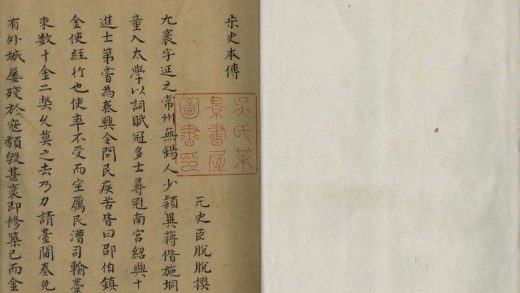 宋史本傳
元史臣脫脫撰
尤袤字延之常州無錫人少頴異蔣偕施坰
童入太學以詞賦冠多士尋冠南宮紹興十
進士第嘗為泰興令問民疾苦皆曰邵伯鎮
金使經行也使率不受而空厲民漕司輸藁
束數十金二弊久莫之去乃力請臺閫奏免
有外城屢殘於寇頹毀甚袤即修築已而金
吳氏某
景書屋
圖書印